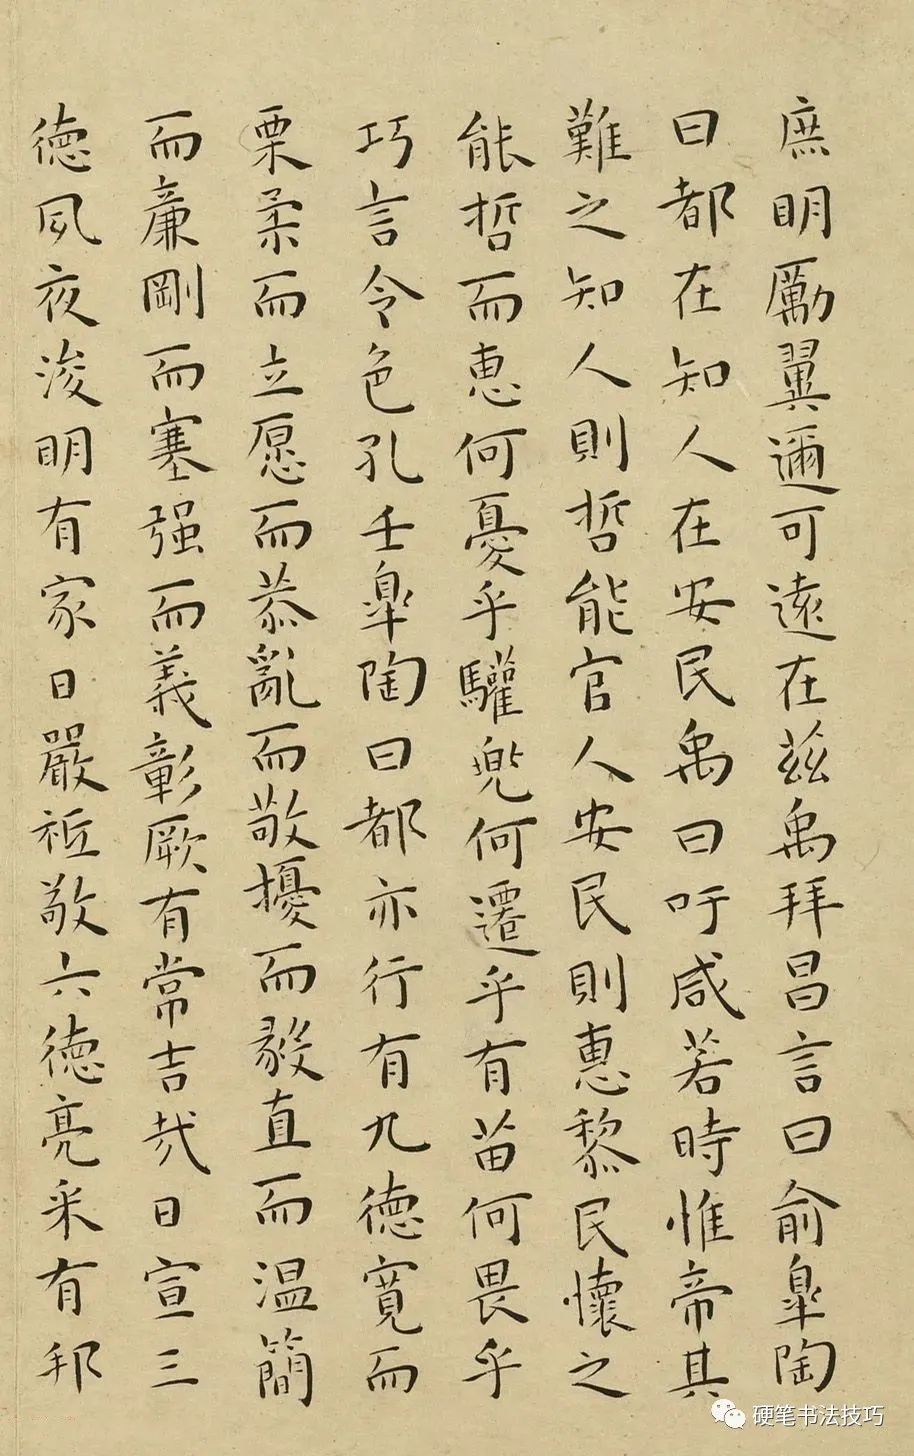 庶明勵翼邇可遠在茲禹拜昌言曰俞皋陶
曰都在知人在安民禹曰吁咸若時惟帝其
難之知人則哲能官人安民則惠黎民懷之
能哲而惠何憂乎驩兜何遷乎有苗何畏乎
巧言令色孔壬皋陶曰都亦行有九德寬而
栗柔而立愿而恭亂而敬擾而毅直而温簡
而廉剛而塞强而義彰厥有常吉哉日宣三
德夙夜浚明有家日嚴祗敬六德亮采有邦
硬笔书法技巧